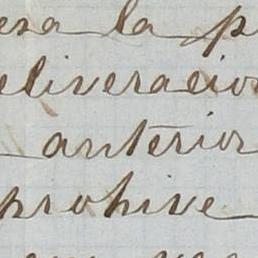 esa la p
eliveracion
anterior
prohive